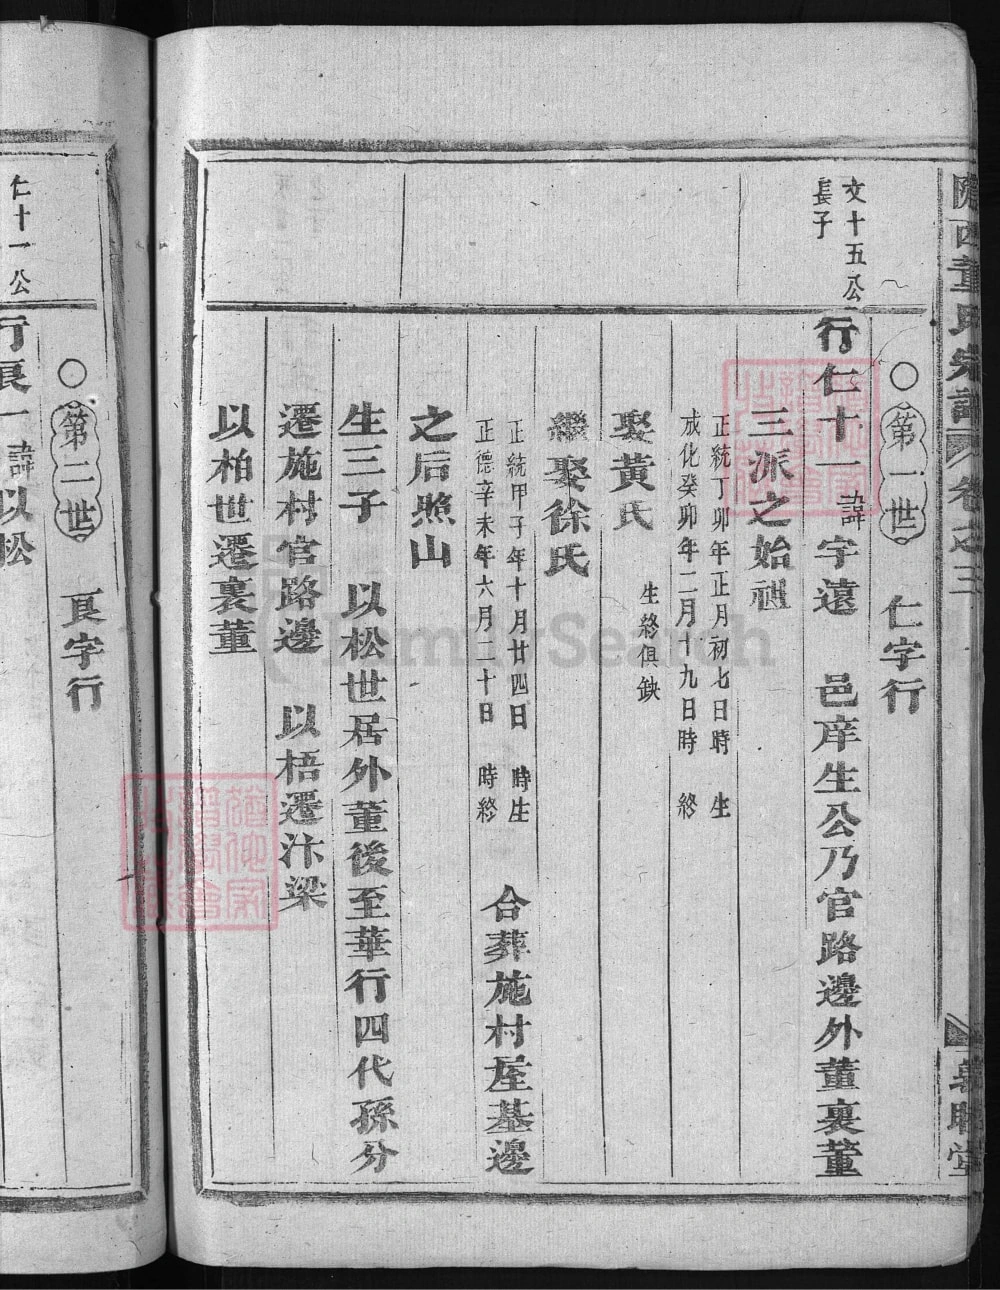 隴西董氏宗譜 卷之三
○第一世 仁字行
文十五公
長子
行仁十一 諱 字遠 邑庠生公乃官路邊外董裏董
三派之始祖
正統丁卯年正月初七日時 生
成化癸卯年二月十九日時 終
娶黃氏 生終俱缺
繼娶徐氏
正統甲子年十月廿四日 時生
正德辛未年六月二十日 時終
合葬施村屋基邊
之后照山
生三子 以松世居外董後至華行四代孫分
遷施村官路邊 以梧遷汴梁
以柏世遷裏董
○第二世 良字行
仁十一公
行良一 諱以松
FamilySearch